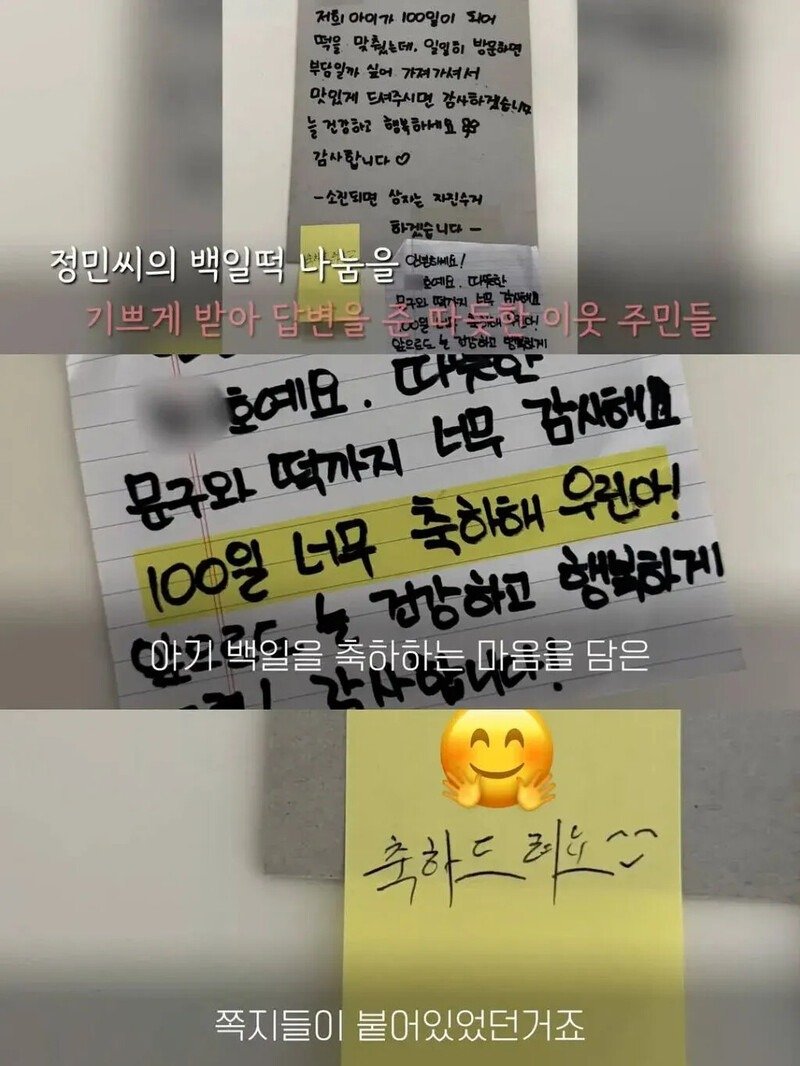 저희 아이가 100일이 되어
떡을 맞췄는데, 일일히 방문하면
부담일까 싶어 가져가셔서
맛있게 드셔주시면 감사하겠습니다
늘 건강하고 행복하세요
감사합니다♡
-소진되면 상자는 자진수거
하겠습니다-
안녕하세요!
호예요. 따뜻한
문구와 떡까지 너무 감사해요
100일 너무 축하해 우린아!
앞으로도 늘 건강하고 행복하게
정민씨의 백일떡 나눔을
기쁘게 받아 답변을 준 따뜻한 이웃 주민들
호예요. 따뜻한
문구와 떡까지 너무 감사해요
100일 너무 축하해 우린아!
앞으로도 늘 건강하고 행복하게
감사합니다!
아기 백일을 축하하는 마음을 담은
축하드려요^^
쪽지들이 붙어있었던거죠